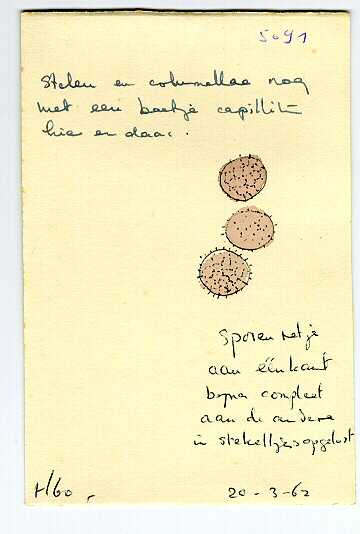 5091
Stelen en columellae nog
met een beetje capillit
hier en daar.
Sporen netje
aan één kant
bijna compleet
aan de andere
in stekeltjes opgelost
H/60
20-3-62